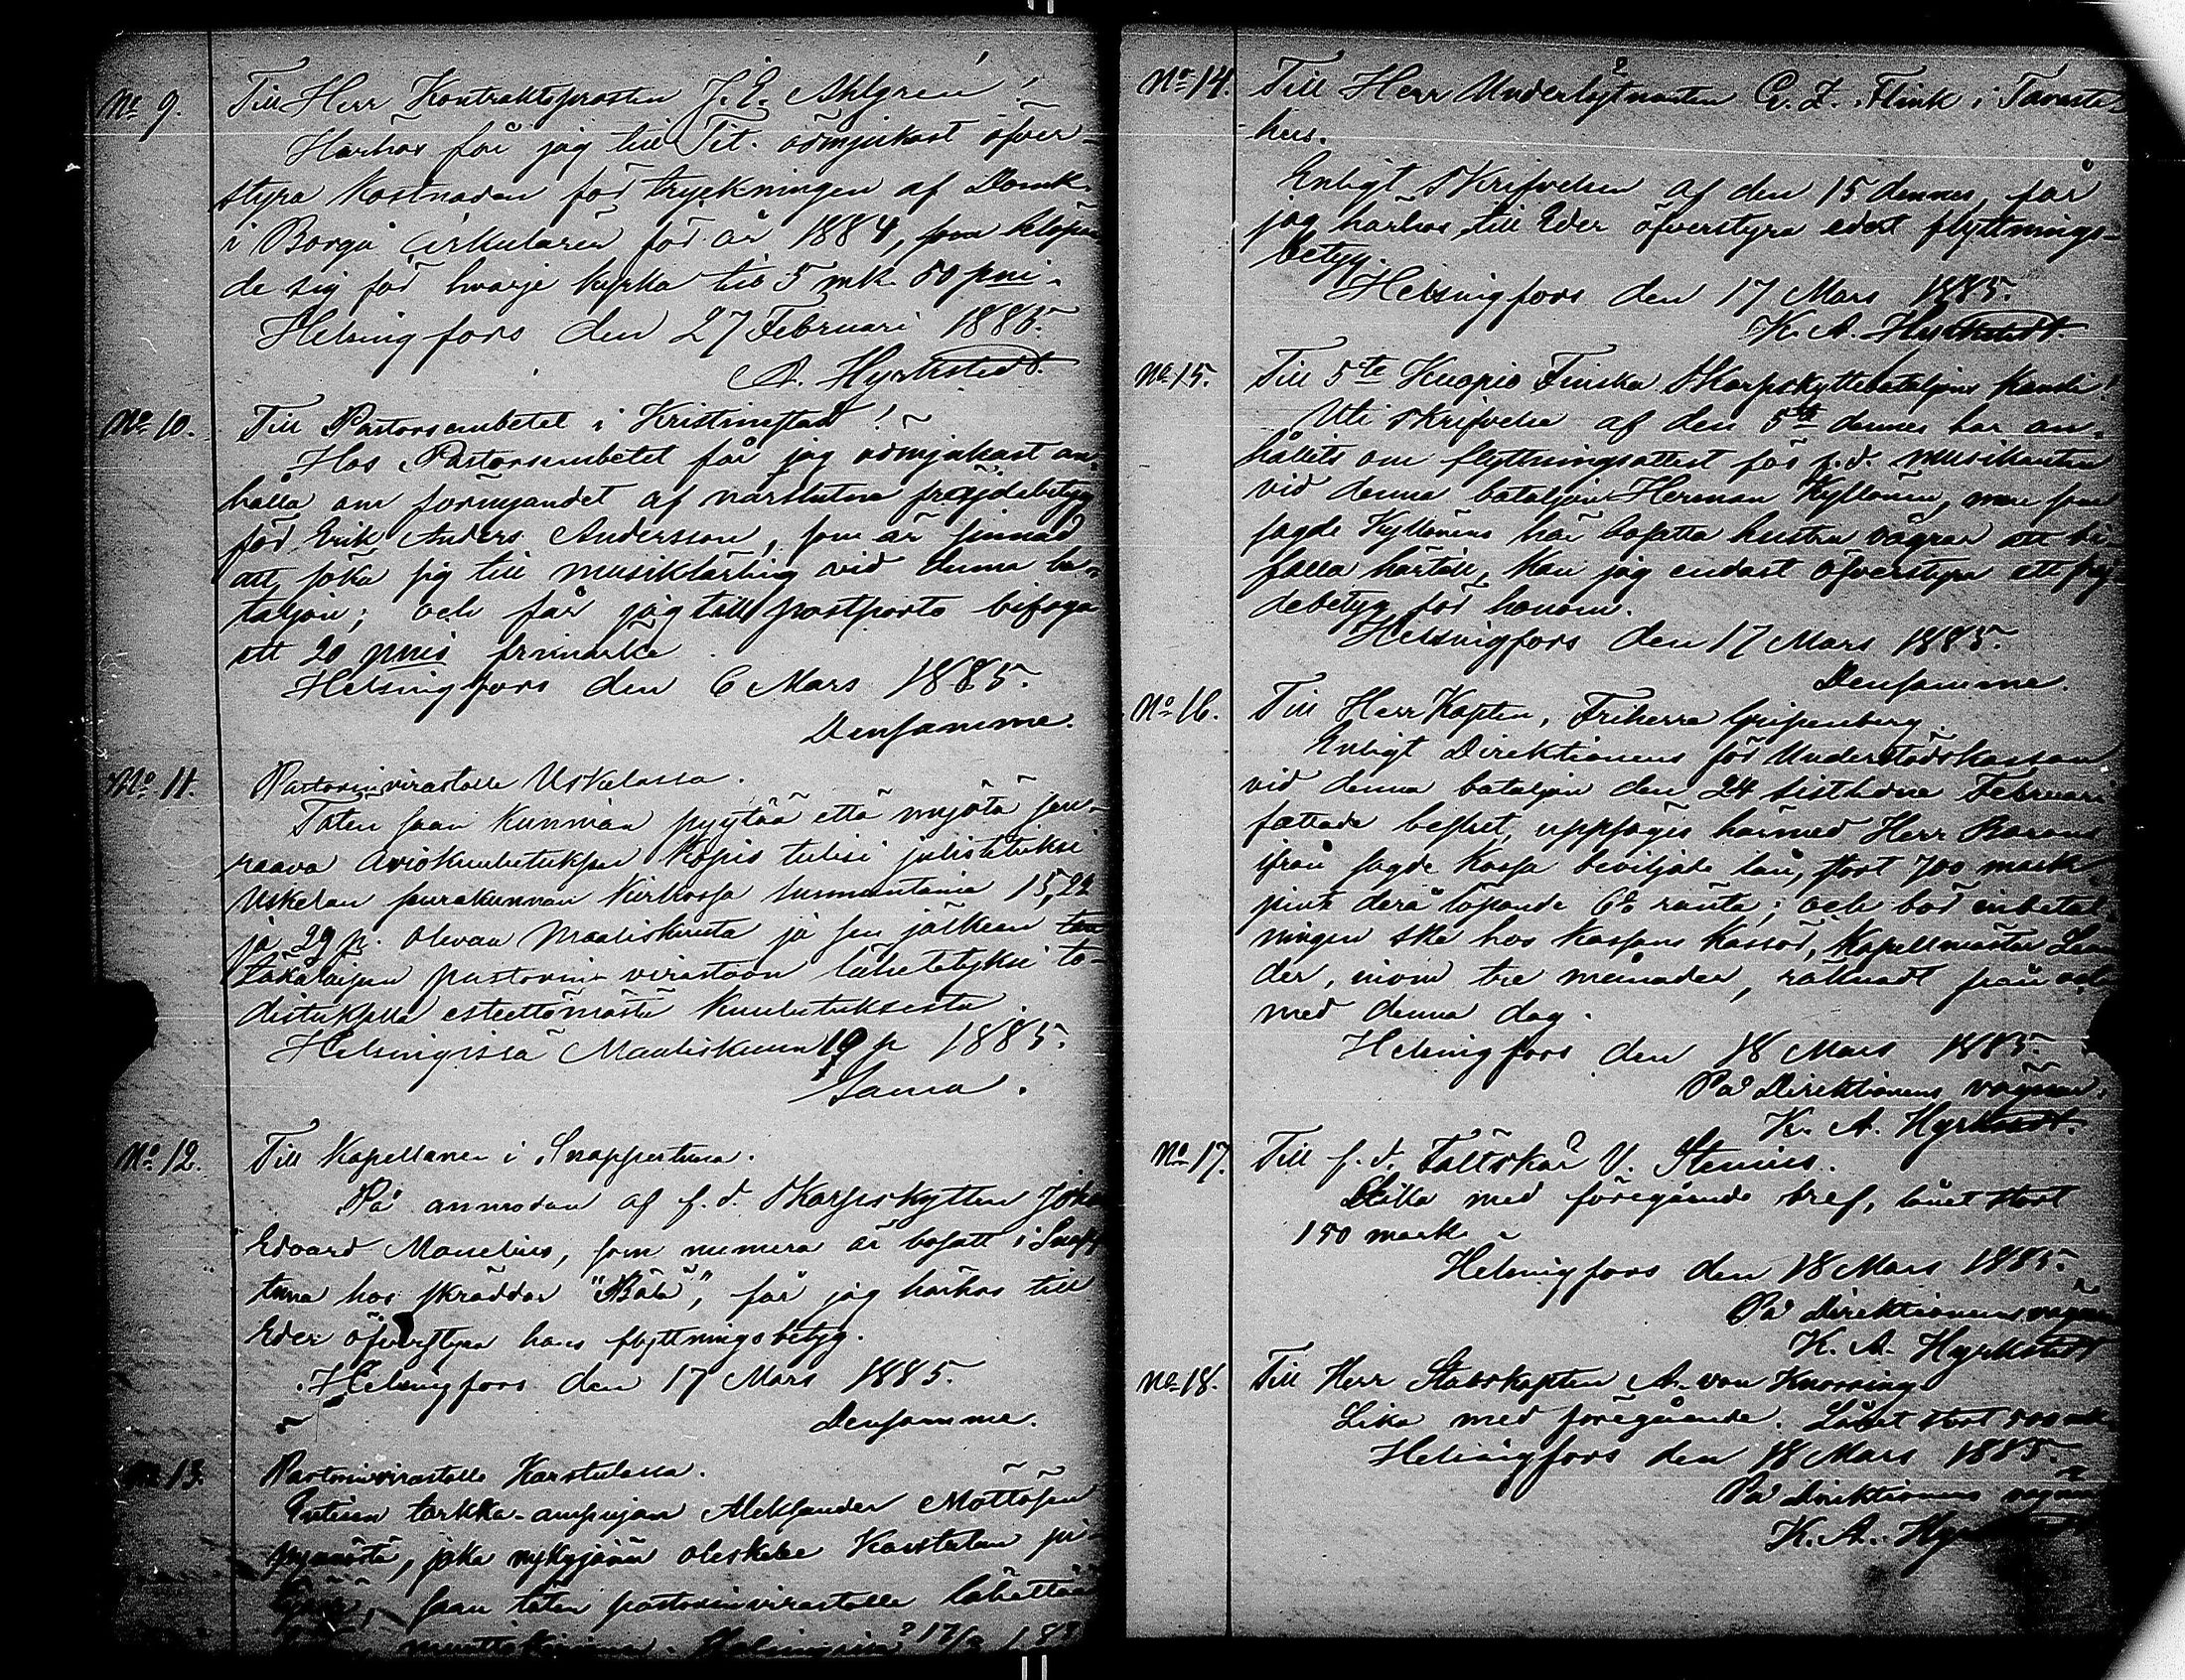 No 9. Till Herr Kontraktsprosten J. E. Ahlgren!
Härhos får jag till Tit. ödmjukast öfver-
styra kostnaden för tryckningen af Domk.
i Borgå Cirkulärer för år 1884, som belöpan
de sig för hvarje kyrka till 5 mk 50 pni.
Helsingfors den 27 Februari 1885.
A. Hyrkstedt.
No 10. Till Pastorsembetet i Kristinestad!
Hos Pastorsembetet får jag ödmjukast an-
hålla om förnyandet af närslutna frejdebetyg
för Erik Anders Andersson, som är sinnad
att söka sig till musiklärling vid denna ba-
taljon; och får jag till postporto bifoga
ett 20 pnis frimärke.
Helsingfors den 6 Mars 1885.
Densamme.
No 11. Pastorinvirastolle Uskelassa.
Täten saan kunnian pyytää että myötä seu-
raava aviokuulutuksen kopis tulisi julistetuksi
Uskelan seurakunnan kirkossa sunnuntaina 15, 22
ja 29 p. olevan Maaliskuuta ja sen jälkeen
täkäläisen pastorin-virastoon lähetetyksi to-
distuksella esteettömästä kuulutuksesta.
Helsingissä Maaliskuun 10 p 1885.
Sama.
No 12. Till Kapellanen i Snappertuna.
På anmodan af f. d. Skarpskytten Joha
Edvard Manelius, som numera är bosatt i Snapp
tuna hos skräddar "Bälä", får jag härhos till
Eder öfverstyra hans flyttningsbetyg.
Helsingfors den 17 Mars 1885.
Densamme.
No 13. Pastorinvirastolle Karstulassa.
Entisen tarkka-ampujan Aleksander Möttösen
pyynöstä, joka nykyjään oleskelee Karstulan pi-
täjää, saan täten pastorinvirastolle lähettää
muuttokirjansa. Helsingissä 17/3 188
No 14. Till Herr Underlöjtnanten G. Z. Flink i Tavaste-
hus.
Enligt skrifvelsen af den 15 dennes, får
jag härhos till Eder öfverstyra edert flyttnings-
betyg.
Helsingfors den 17 Mars 1885.
K. A. Hyrkstedt.
No 15. Till 5te Kuopio Finska Skarpskyttebataljons Kansli!
Uti skrifvelse af den 5te dennes har an-
hållits om flyttningsattest för f. d. musikanten
vid denna bataljon Herman Kyllönen, men som
sagde Kyllönens här bosatta hustru vägrar att bi-
falla härtill, kan jag endast öfverstyra ett frej-
debetyg för honom.
Helsingfors den 17 Mars 1885.
Densamme.
No 16. Till Herr Kapten, Friherre Gripenberg.
Enligt Direktionens för Understödskassan
vid denna bataljon den 24 sistlidne Februari
fattade beslut, uppsäges härmed Herr Barons
ifrån sagde kassa beviljade lån, stort 700 mark
jemte derå löpande 6% ränta; och bör inbetal-
ningen ske hos kassans kassör, Kapellmäster Lean
der, inom tre månader, räknadt från och
med denna dag.
Helsingfors den 18 Mars 1885.
På Direktionens vägnar.
K. A. Hyrkstedt.
No 17. Till f. d. Fältskär V. Stenius.
Lika med föregående bref, lånet stort
150 mark.
Helsingfors den 18 Mars 1885.
På Direktionens vägnar
K. A. Hyrkstedt
No 18. Till Herr Stabskapten A. von Knorring
Lika med föregående. Lånet stort 500 mk
Helsingfors den 18 Mars 1885.
På Direktionens vägnar
K. A. Hyrkstedt